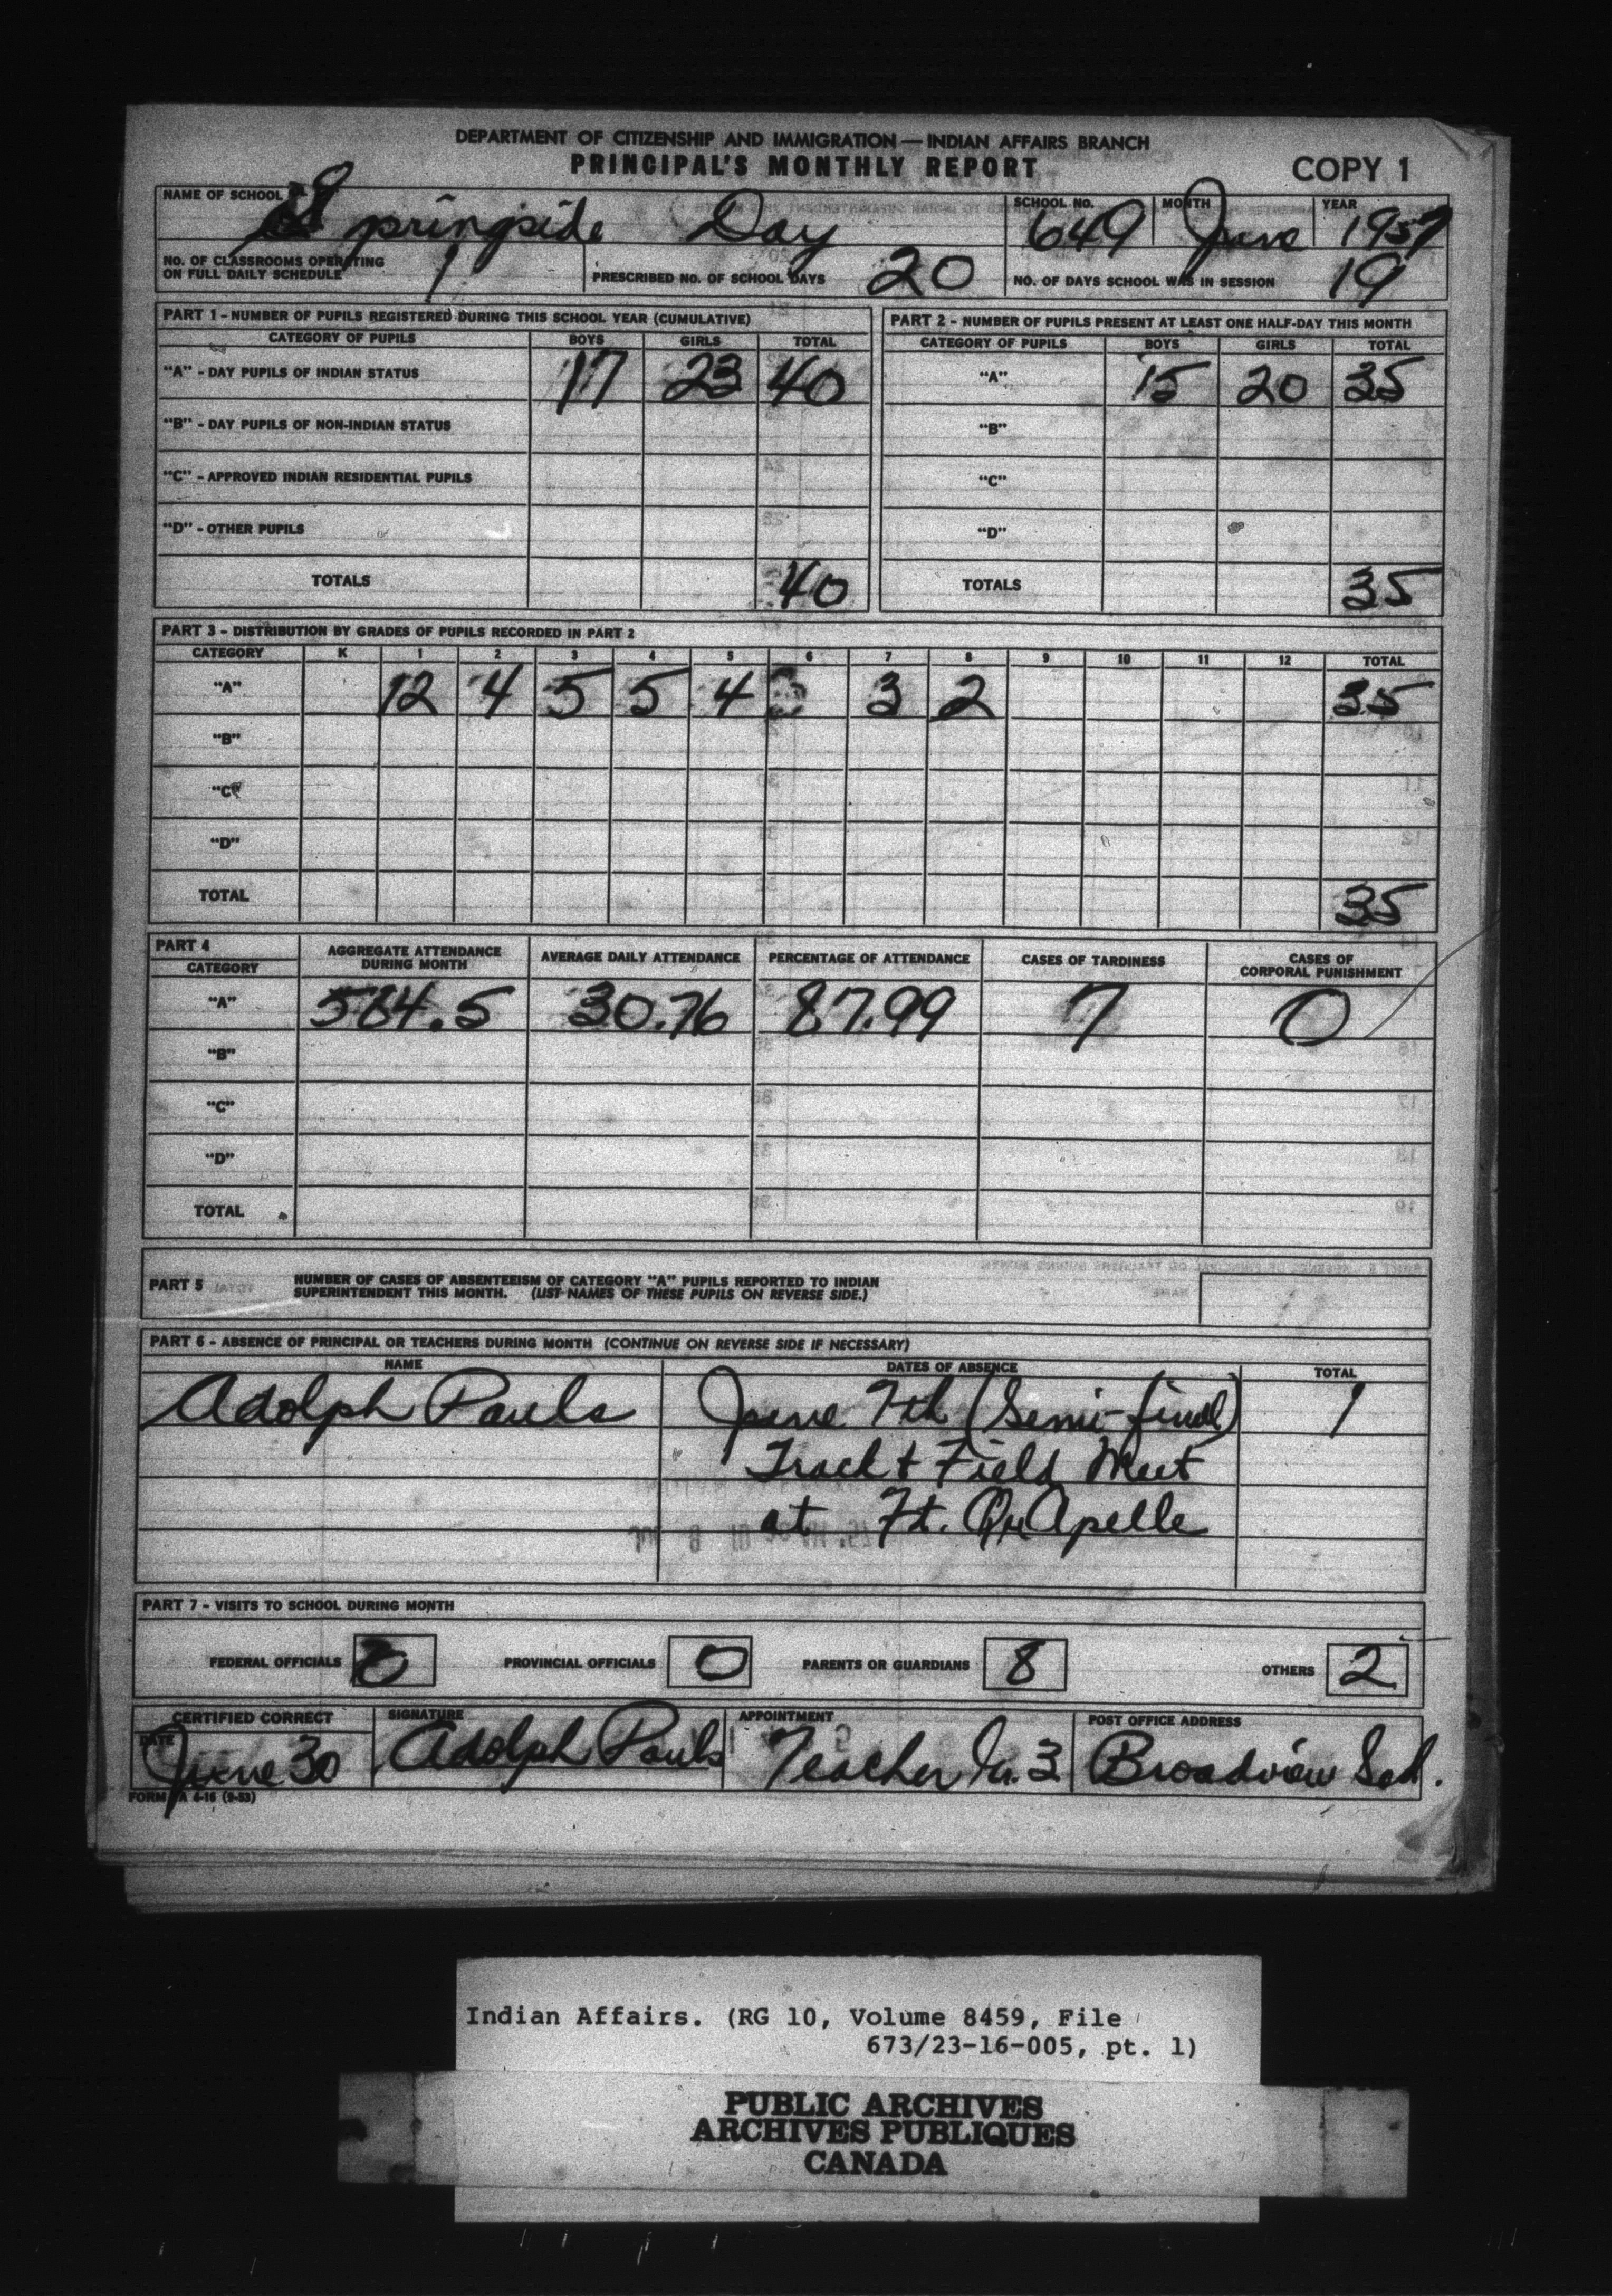 DEPARTMENT OF CITIZENSHIP AND IMMIGRATION — INDIAN AFFAIRS BRANCH
PRINCIPAL'S MONTHLY REPORT COPY 1
NAME OF SCHOOL Springside Day SCHOOL NO. 649 MONTH June YEAR 1957
NO. OF CLASSROOMS OPERATING ON FULL DAILY SCHEDULE 1 PRESCRIBED NO. OF SCHOOL DAYS 20 NO. OF DAYS SCHOOL WAS IN SESSION 19
PART 1 - NUMBER OF PUPILS REGISTERED DURING THIS SCHOOL YEAR (CUMULATIVE)
CATEGORY OF PUPILS BOYS GIRLS TOTAL
"A" - DAY PUPILS OF INDIAN STATUS 17 23 40
"B" - DAY PUPILS OF NON-INDIAN STATUS
"C" - APPROVED INDIAN RESIDENTIAL PUPILS
"D" - OTHER PUPILS
TOTALS 40
PART 2 - NUMBER OF PUPILS PRESENT AT LEAST ONE HALF-DAY THIS MONTH
CATEGORY OF PUPILS BOYS GIRLS TOTAL
"A" 15 20 35
"B"
"C"
"D"
TOTALS 35
PART 3 - DISTRIBUTION BY GRADES OF PUPILS RECORDED IN PART 2
CATEGORY K 1 2 3 4 5 6 7 8 9 10 11 12 TOTAL
"A" 12 4 5 5 4 3 2 35
"B"
"C"
"D"
TOTAL 35
PART 4
CATEGORY AGGREGATE ATTENDANCE DURING MONTH AVERAGE DAILY ATTENDANCE PERCENTAGE OF ATTENDANCE CASES OF TARDINESS CASES OF CORPORAL PUNISHMENT
"A" 584.5 30.76 87.99 7 0
"B"
"C"
"D"
TOTAL
PART 5 NUMBER OF CASES OF ABSENTEEISM OF CATEGORY "A" PUPILS REPORTED TO INDIAN
SUPERINTENDENT THIS MONTH. (LIST NAMES OF THESE PUPILS ON REVERSE SIDE.)
PART 6 - ABSENCE OF PRINCIPAL OR TEACHERS DURING MONTH (CONTINUE ON REVERSE SIDE IF NECESSARY)
NAME DATES OF ABSENCE TOTAL
Adolph Pauls June 7th (Semi-final) 1
Track & Field Meet
at Ft. Qu Apelle
PART 7 - VISITS TO SCHOOL DURING MONTH
FEDERAL OFFICIALS 0 PROVINCIAL OFFICIALS 0 PARENTS OR GUARDIANS 8 OTHERS 2
CERTIFIED CORRECT SIGNATURE APPOINTMENT POST OFFICE ADDRESS
DATE June 30 Adolph Pauls Teacher Gr. 3 Broadview Sask.
FORM IA 4-16 (9-53)
Indian Affairs. (RG 10, Volume 8459, File
673/23-16-005, pt. 1)
PUBLIC ARCHIVES
ARCHIVES PUBLIQUES
CANADA